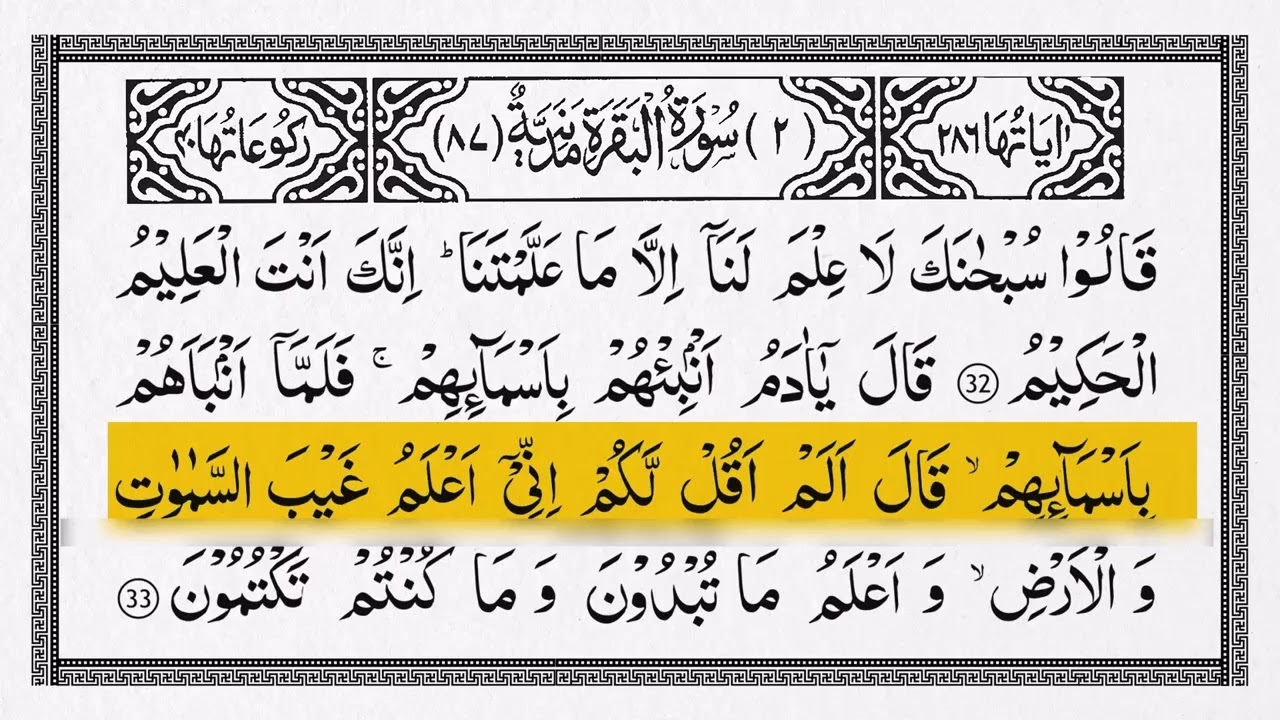 اٰيَاتُهَا ٢٨٦ (٢) سُوْرَةُ الْبَقَرَةِ مَدَنِيَّةٌ (٨٧) رُكُوْعَاتُهَا ٤٠
قَالُوْا سُبْحٰنَكَ لَا عِلْمَ لَنَاۤ اِلَّا مَا عَلَّمْتَنَا ؕ اِنَّكَ اَنْتَ الْعَلِيْمُ
الْحَكِيْمُ 32 قَالَ يٰۤاٰدَمُ اَنْۢبِئْهُمْ بِاَسْمَآئِهِمْ ۚ فَلَمَّاۤ اَنْۢبَاَهُمْ
بِاَسْمَآئِهِمْ ۙ قَالَ اَلَمْ اَقُلْ لَّكُمْ اِنِّيْۤ اَعْلَمُ غَيْبَ السَّمٰوٰتِ
وَ الْاَرْضِ ۙ وَ اَعْلَمُ مَا تُبْدُوْنَ وَ مَا كُنْتُمْ تَكْتُمُوْنَ 33